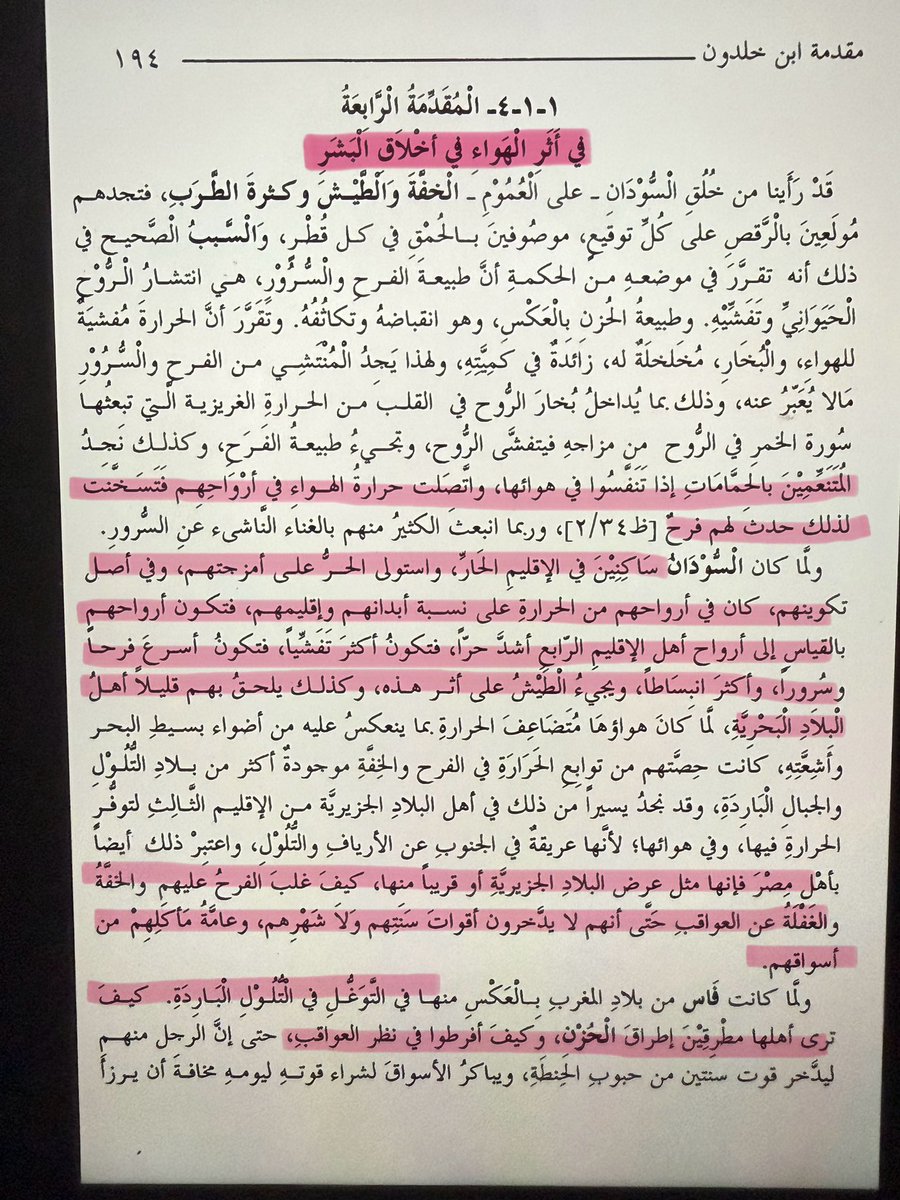 مقدمة ابن خلدون ١٩٤
١-١-٤- الْمُقَدِّمَةُ الرَّابِعَةُ
في أَثَرِ الْهَواءِ في أخْلاَقِ الْبَشَرِ
قَدْ رَأَينا من خُلُقِ الْسُّوْدَانِ ـ على الْعُمُوْمِ ـ الْخفَّةَ وَالْطَّيْشَ وكثرةَ الطَّرَبِ، فتجدهم
مُولَعِينَ بالرَّقصِ على كُلِّ توقيعٍ، موصُوفينَ بـالحُمْقِ في كـل قُطْرٍ، وَالْسَّببُ الْصَّحيـح في
ذلك أنه تقـرَّرَ في موضعـهِ مـن الحكمـةِ أنَّ طبيعـةَ الفـرحِ والْسُّـرُوْرِ، هـي انتشـارُ الْـرُّوْحِ
الْحَيَوَانِيِّ وتَفَشِّيْهِ. وطبيعةُ الحُزنِ بالْعَكْسِ، وهو انقباضهُ وتكاثُفُهُ. وتَقَرَّرَ أنَّ الحرارةَ مُفشيَةٌ
للهواءِ، والْبُخَارِ، مُخَلخلَةٌ له، زَائدةٌ في كمِيَّتِهِ، ولهذا يَجِدُ الْمُنْتَشِـي مـن الفـرحِ والْسُّـرُوْرِ
مَالا يُعَبَّرُ عنه، وذلك بما يُداخلُ بُخارَ الرُّوح في القلـب مـن الحـرارةِ الغريزيـة الَّـتي تبعثُهـا
سُورة الخمرِ في الرُّوح من مزاجهِ فيتفشَّى الرُّوح، وتجـيءُ طبيعـةُ الفَـرَحِ، وكذلـك نَجِـدُ
الْمُتَنَعِّمِيْنَ بالحمَّامَاتِ إذا تَنَفَّسُوا في هوائها، واتَّصَلت حرارةُ الهـواءِ في أرْوَاحِهِـم فَتَسَـخَّنَت
لذلك حدثَ لهم فرحٌ [ظ٢/٣٤]، وربما انبعث الكثيرُ منهم بالغناء النَّاشىء عنِ السُّرورِ.
ولَّما كان الْسُّوْدَانُ سَاكِنِيْنَ في الإقليمِ الحَارِّ، واستولى الحـرُّ علـى أمزجتهـم، وفي أصـل
تكوينهم، كان في أرواحهم من الحرارةِ على نسـبة أبدانهـم وإقليمهـم، فتكـون أرواحهـم
بالقياس إلى أرواح أهل الإقليمِ الرّابعِ أشدَّ حرّاً، فتكونُ أكثرَ تَفَشِّياً، فتكونُ أسـرعَ فرحـاً
وسُروراً، وأكثرَ انبِسَاطاً، ويجيءُ الْطَيْشُ على أثـر هذه، وكذلـك يلحـقُ بهـم قليـلاً أهـلُ
الْبلادِ الْبَحْرِيَّةِ، لَّما كانَ هواؤهَا مُتَضَاعِفَ الحرارةِ بما ينعكسُ عليه من أضواء بسـيطِ البحـر
وأَشِعَّتِهِ، كانت حِصَّتهم من توابعِ الحَرَارَةِ في الفرح والخِفَّةِ موجودةٌ أكثر من بـلادِ التُّلُـوْلِ
والجبالِ الْبَارِدَةِ، وقد نجدُ يسيراً من ذلك في أهل البلادِ الجزيريَّة مـن الإقليـم الثَّـالثِ لتوفُّـر
الحرارةِ فيها، وفي هوائها؛ لأنَّها عريقةٌ في الجنوبِ عن الأريافِ والتُّلُوْلِ، واعتبِرْ ذلك أيضاً
بأهْلِ مِصْرَ فإنها مثل عرض البلادِ الجزيريَّةِ أو قريباً منها، كيفَ غلبَ الفرحُ عليهم والخفَّةُ
والغَفْلَةُ عن العواقبِ حَتَّى أنهم لا يدَّخرون أقواتَ سَنَتِهم ولاَ شَهْرِهم، وعامَّةُ مَأكَلِهِمْ من
أسواقهم.
ولَّما كانت فَاس من بلادِ المغربِ بـالْعَكْسِ منهـا في التَّوَغُّـلِ في الْتُلُوْلِ الْبَارِدَةِ. كيـفَ
ترى أهلها مطْرِقِيْنَ إطراقَ الْحُزْنِ، وكيفَ أفرطوا في نظر العواقبِ، حتى إنَّ الرجل منهـم
ليدَّخر قوت سنتين من حبوبِ الحِنطَةِ، ويباكرُ الأسواقَ لشراءِ قوتـهِ ليومـهِ مخافـةَ أن يـرزأَ